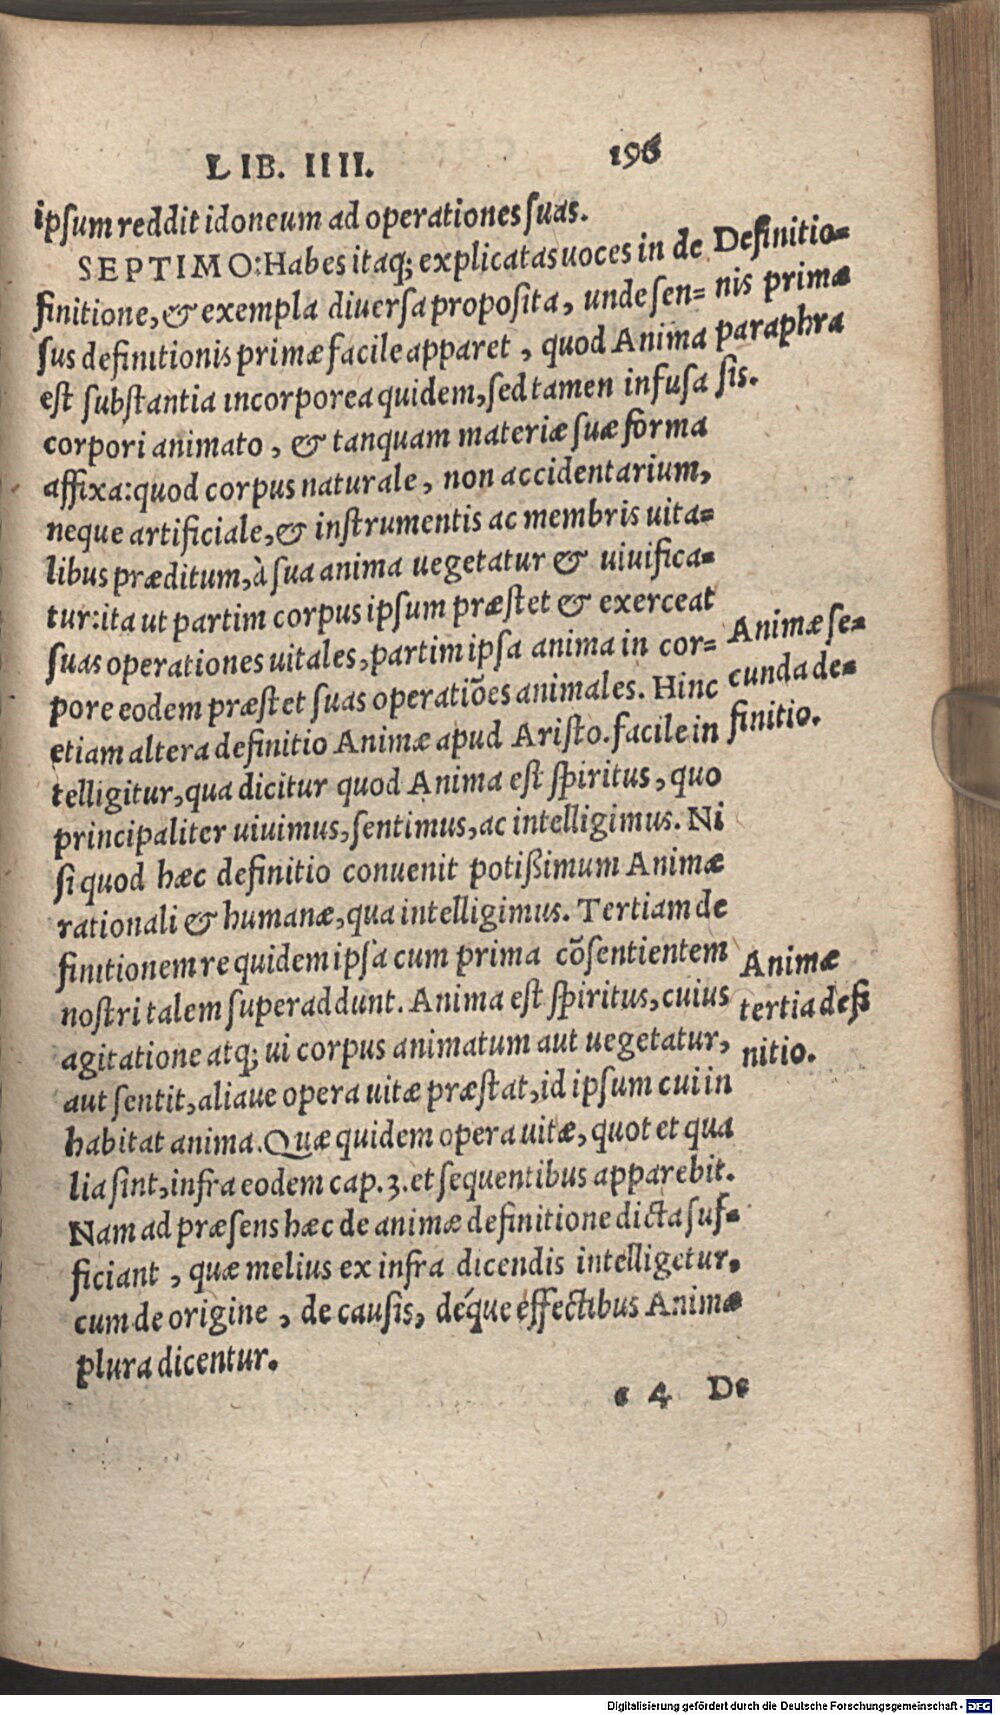 LIB. IIII. 196
ipſum reddit idoneum ad operationes ſuas.
SEPTIMO: Habes itaq; explicatas uoces in de
finitione, & exempla diuerſa propoſita, unde ſen=
ſus definitionis primæ facile apparet, quod Anima
eſt ſubſtantia incorporea quidem, ſed tamen infuſa
corpori animato, & tanquam materiæ ſuæ forma
affixa: quod corpus naturale, non accidentarium,
neque artificiale, & inſtrumentis ac membris uita=
libus præditum, à ſua anima uegetatur & uiuifica=
tur: ita ut partim corpus ipſum præſtet & exerceat
ſuas operationes uitales, partim ipſa anima in cor=
pore eodem præſtet ſuas operatiões animales. Hinc
etiam altera definitio Animæ apud Ariſto. facile in
telligitur, qua dicitur quod Anima eſt ſpiritus, quo
principaliter uiuimus, ſentimus, ac intelligimus. Ni
ſi quod hæc definitio conuenit potißimum Animæ
rationali & humanæ, qua intelligimus. Tertiam de
finitionem re quidem ipſa cum prima cõſentientem
noſtri talem ſuperaddunt. Anima eſt ſpiritus, cuius
agitatione atq; ui corpus animatum aut uegetatur,
aut ſentit, aliaue opera uitæ præſtat, id ipſum cui in
habitat anima. Quæ quidem opera uitæ, quot et qua
lia ſint, infra eodem cap. 3. et ſequentibus apparebit.
Nam ad præſens hæc de animæ definitione dicta ſuf=
ficiant, quæ melius ex infra dicendis intelligetur.
cum de origine, de cauſis, déque effectibus Animæ
plura dicentur.
Definitio=
nis primæ
paraphra
ſis.
Animæ ſe=
cunda de=
finitio.
Animæ
tertia defi
nitio.
e 4 De
Digitalisierung gefördert durch die Deutsche Forschungsgemeinschaft - DFG